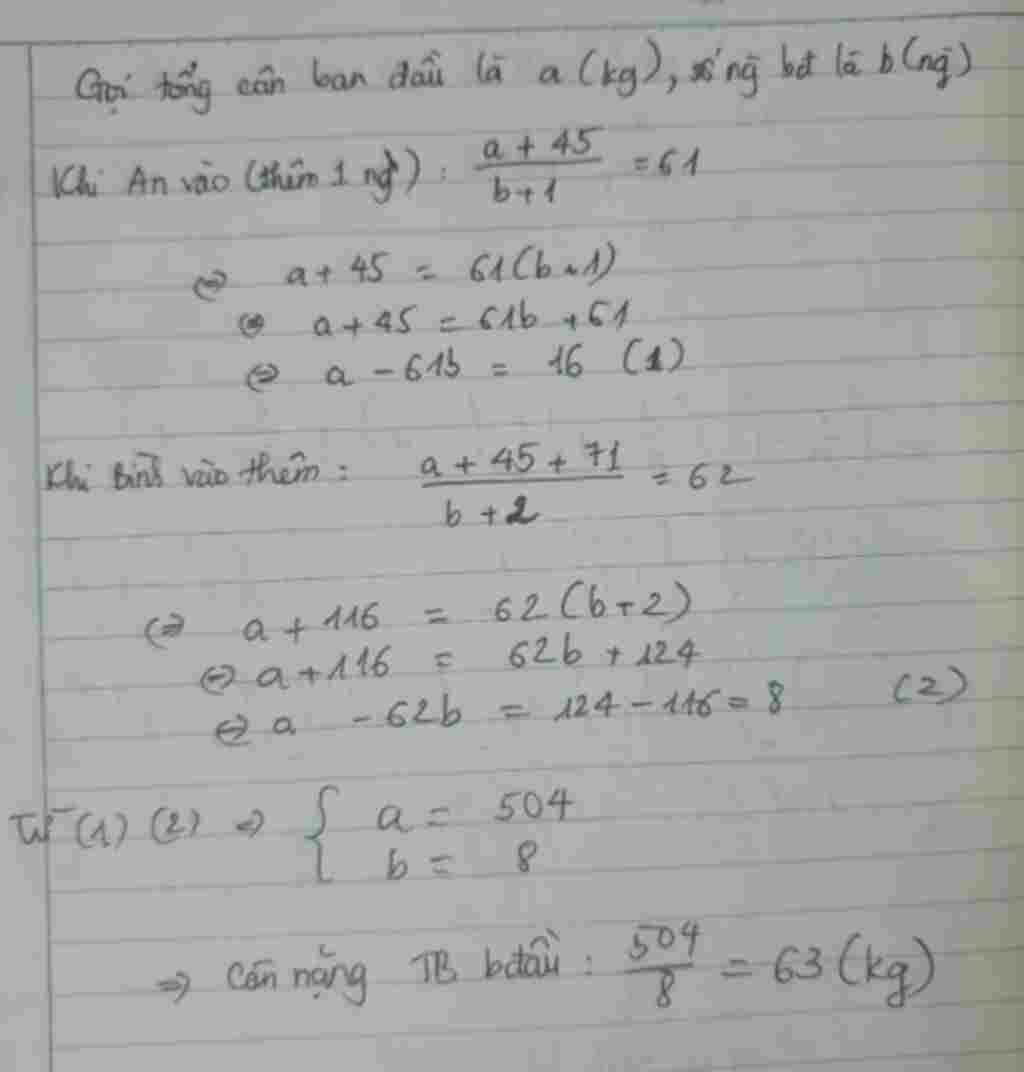 Gọi tổng cân ban đầu là a (kg), số ng bđ là b (ng)
Khi An vào (thêm 1 ng) : \frac{a + 45}{b + 1} = 61
⇔ a + 45 = 61(b + 1)
⇔ a + 45 = 61b + 61
⇔ a - 61b = 16 (1)
Khi Bình vào thêm : \frac{a + 45 + 71}{b + 2} = 62
⇔ a + 116 = 62(b + 2)
⇔ a + 116 = 62b + 124
⇔ a - 62b = 124 - 116 = 8 (2)
Từ (1) (2) ⇒ { a = 504
b = 8
⇒ Cân nặng TB bđầu : \frac{504}{8} = 63 (kg)